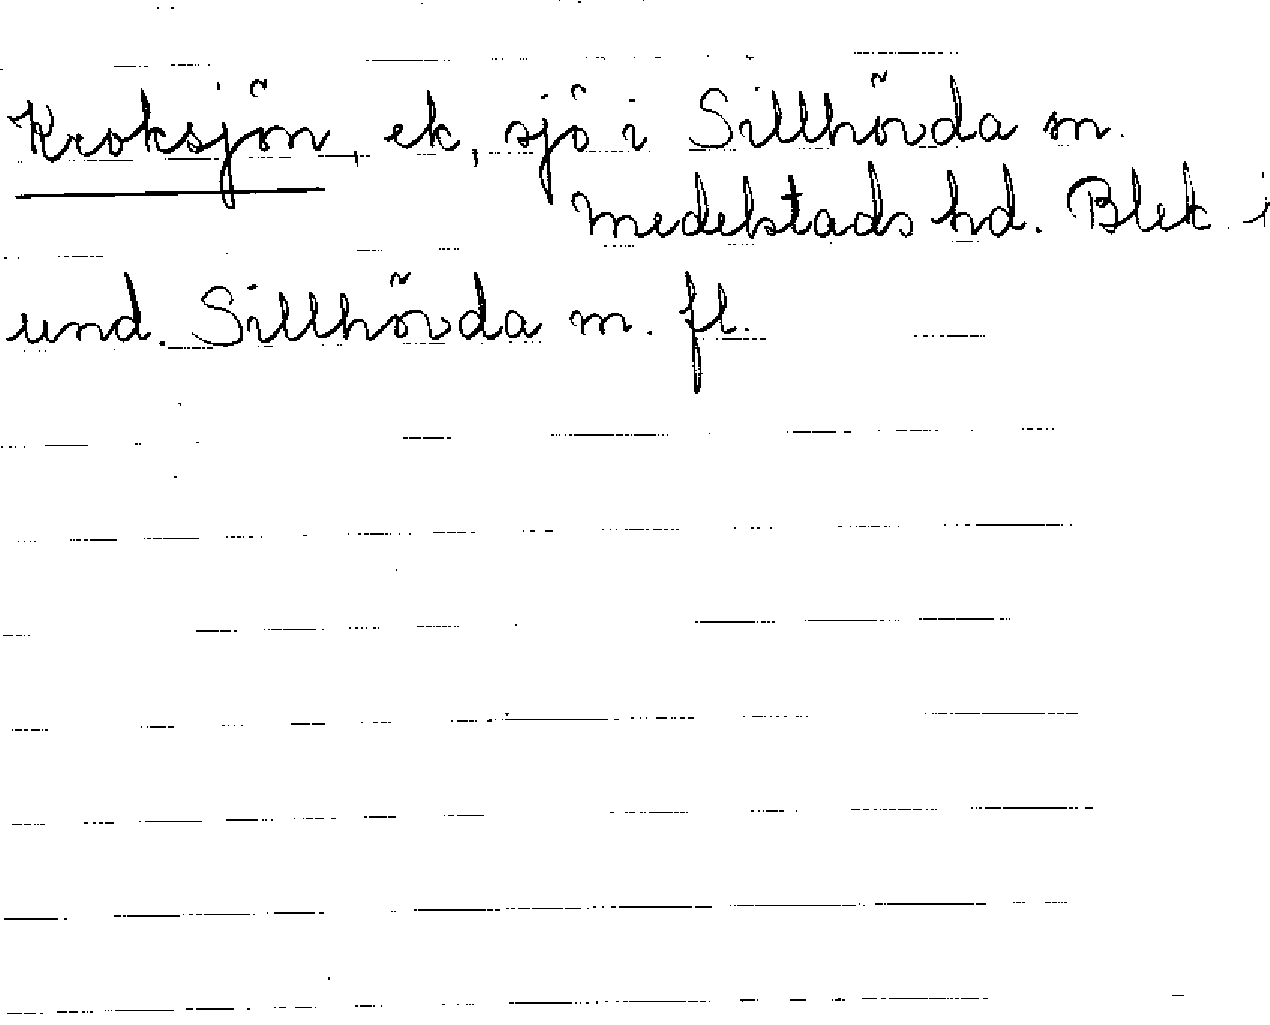 Kroksjön, ek, sjö i Sillhövda m.
Medelstads hd. Blek i
und. Sillhövda m. fl.